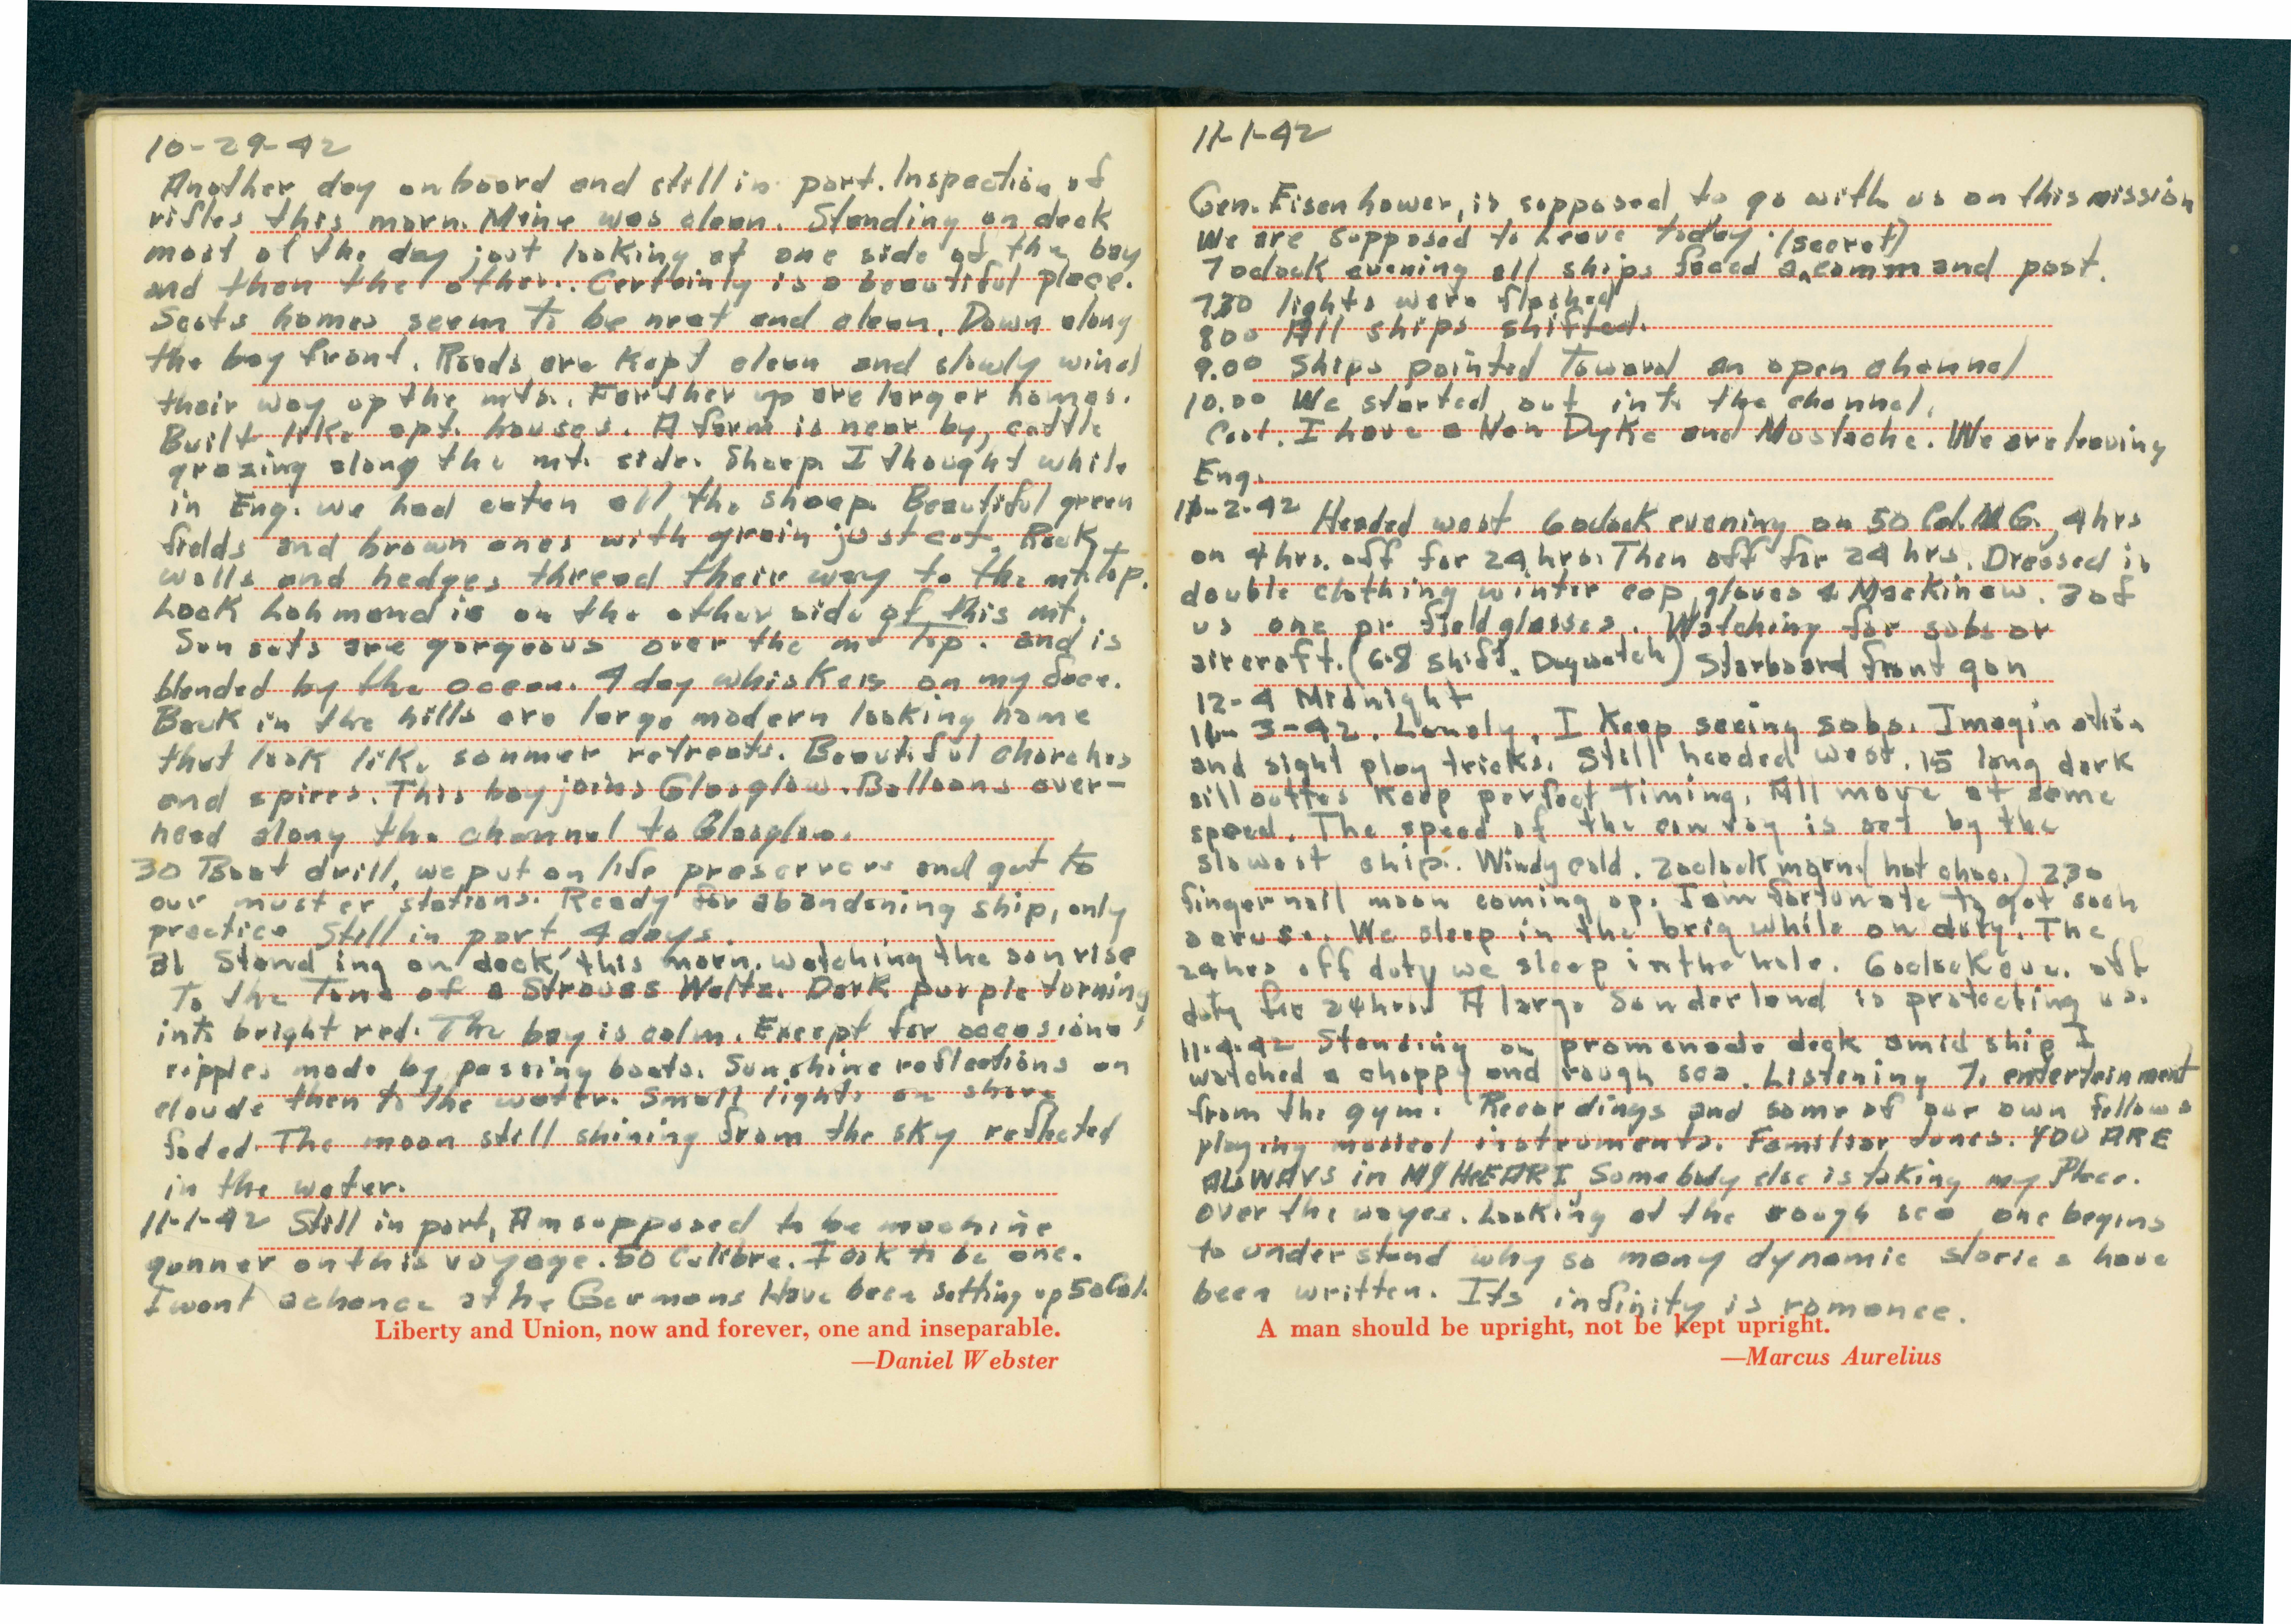 10-29-42
Another day onboard and still in port. Inspection of
rifles this morn. Mine was clean. Standing on deck
most of the day just looking at one side of the bay
and then the other. Certainly is a beautiful place.
Scots homes seem to be neat and clean. Down along
the bay front. Roads are kept clean and slowly wind
their way up the mts. Farther up are larger homes.
Built like apt. houses. A farm is near by, cattle
grazing along the mt. side. Sheep. I thought while
in Eng. we had eaten all the sheep. Beautiful green
fields and brown ones with grain just cut. Rock
walls and hedges thread their way to the mt. top.
Lock Lohmond is on the other side of this mt.
Sun sets are gorgeous over the mt top. and is
blended by the ocean. 4 day whiskers on my face.
Back in the hills are large modern looking home
that look like summer retreats. Beautiful churches
and spires. This bay joins Glasglow. Balloons over-
head along the channel to Glasglow.
30 Boat drill, we put on life preservers and got to
our muster stations. Ready for abandoning ship, only
practice Still in port 4 days.
31 Standing on deck this morn. watching the sun rise
To the Tune of a Strauss Waltz. Dark purple turning
into bright red. The bay is calm. Except for occasional
ripples made by passing boats. Sunshine reflections on
clouds then to the water. Small lights on shore
faded. The moon still shining from the sky reflected
in the water.
11-1-42 Still in port, Am supposed to be machine
gunner on this voyage. 50 Calibre. I ask to be one.
I want a chance at the Germans Have been setting up 50 Cal.
Liberty and Union, now and forever, one and inseparable.
—Daniel Webster
11-1-42
Gen. Eisenhower, is supposed to go with us on this mission
We are supposed to leave today. (secret)
7 oclock evening all ships faced a command post.
730 lights were flashed
800 All ships shifted.
9.00 Ships pointed Toward an open channel
10.00 We started out into the channel.
Cont. I have a Van Dyke and Mustache. We are leaving
Eng.
11-2-42 Headed west 6 oclock evening on 50 Cal. M.G., 4 hrs
on 4 hrs. off for 24 hrs. Then off for 24 hrs. Dressed in
double clothing winter cap, gloves & Mackinaw. 3 of
us one pr. field glasses. Watching for subs or
aircraft. (6-8 shift. Dogwatch) Starboard front gun
12-4 Midnight
11-3-42. Lonely, I keep seeing subs. Imagination
and sight play tricks. Still headed west. 15 long dark
sillouttes keep perfect Timing. All move at same
speed. The speed of the convoy is set by the
slowest ship. Windy cold. 2 oclock morn (hot choc.) 230
finger nail moon coming up. I am fortunate to get such
a cruse. We sleep in the brig while on duty. The
24 hrs off duty we sleep in the hole. 6 oclock eve. off
duty for 24 hrs. A large Sunderland is protecting us.
11-4-42 Standing on promenade deck amid ship I
watched a choppy and rough sea. Listening To entertainment
from the gym. Recordings and some of our own fellows
playing musical instruments. Familiar tunes. YOU ARE
ALWAYS in MY HEART, Somebody else is taking my Place.
over the waves. Looking at the rough sea one begins
to understand why so many dynamic stories have
been written. Its infinity is romance.
A man should be upright, not be kept upright.
—Marcus Aurelius